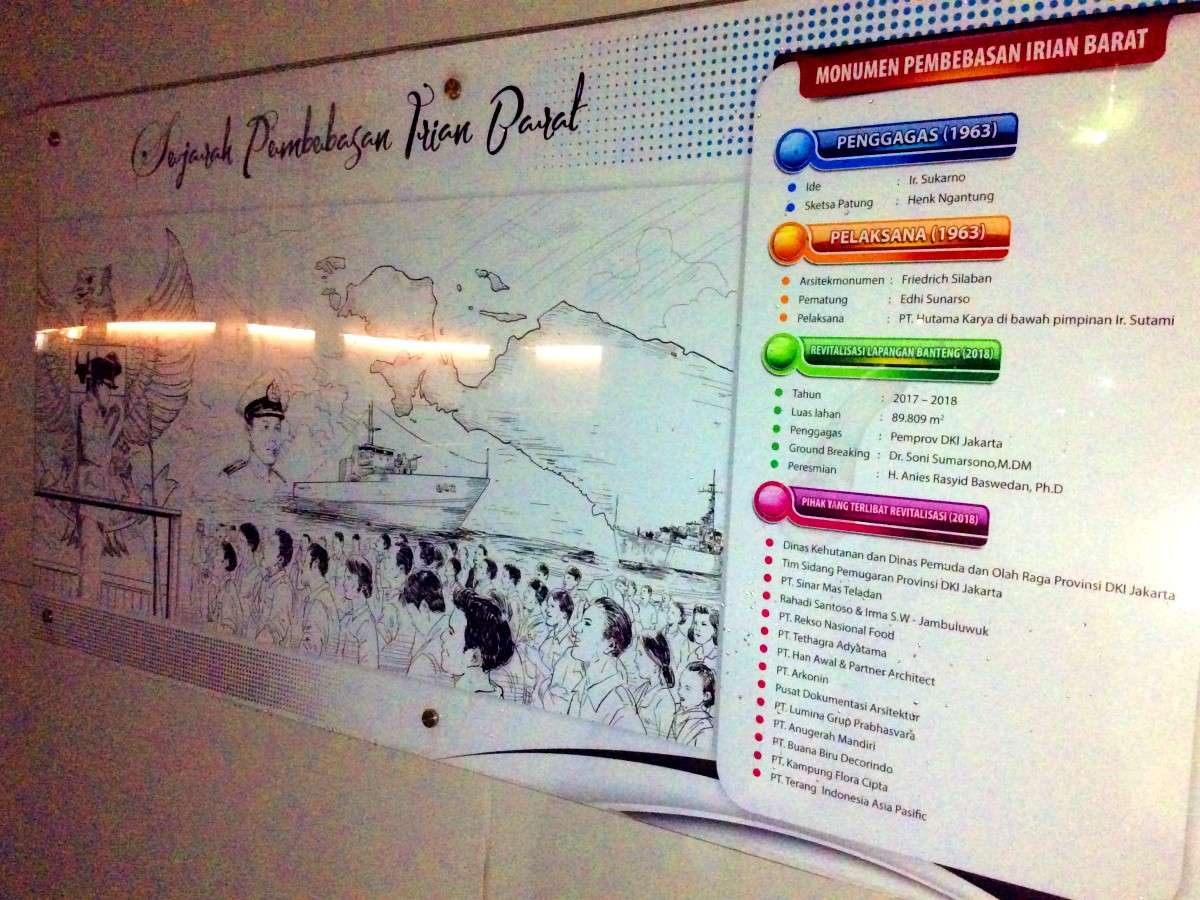 Sejarah Pembebasan Irian Barat
MONUMEN PEMBEBASAN IRIAN BARAT
PENGGAGAS (1963)
Ide : Ir. Sukarno
Sketsa Patung : Henk Ngantung
PELAKSANA (1963)
Arsitekmonumen : Friedrich Silaban
Pematung : Edhi Sunarso
Pelaksana : PT. Hutama Karya di bawah pimpinan Ir. Sutami
REVITALISASI LAPANGAN BANTENG (2018)
Tahun : 2017 – 2018
Luas lahan : 89.809 m²
Penggagas : Pemprov DKI Jakarta
Ground Breaking : Dr. Soni Sumarsono,M.DM
Peresmian : H. Anies Rasyid Baswedan, Ph.D
PIHAK YANG TERLIBAT REVITALISASI (2018)
Dinas Kehutanan dan Dinas Pemuda dan Olah Raga Provinsi DKI Jakarta
Tim Sidang Pemugaran Provinsi DKI Jakarta
PT. Sinar Mas Teladan
Rahadi Santoso & Irma S.W - Jambuluwuk
PT. Rekso Nasional Food
PT. Tethagra Adyatama
PT. Han Awal & Partner Architect
PT. Arkonin
Pusat Dokumentasi Arsitektur
PT. Lumina Grup Prabhasvara
PT. Anugerah Mandiri
PT. Buana Biru Decorindo
PT. Kampung Flora Cipta
PT. Terang Indonesia Asia Pasific